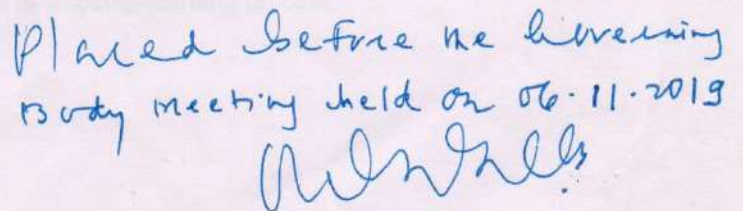 Placed before the Governing
Body meeting held on 06.11.2019